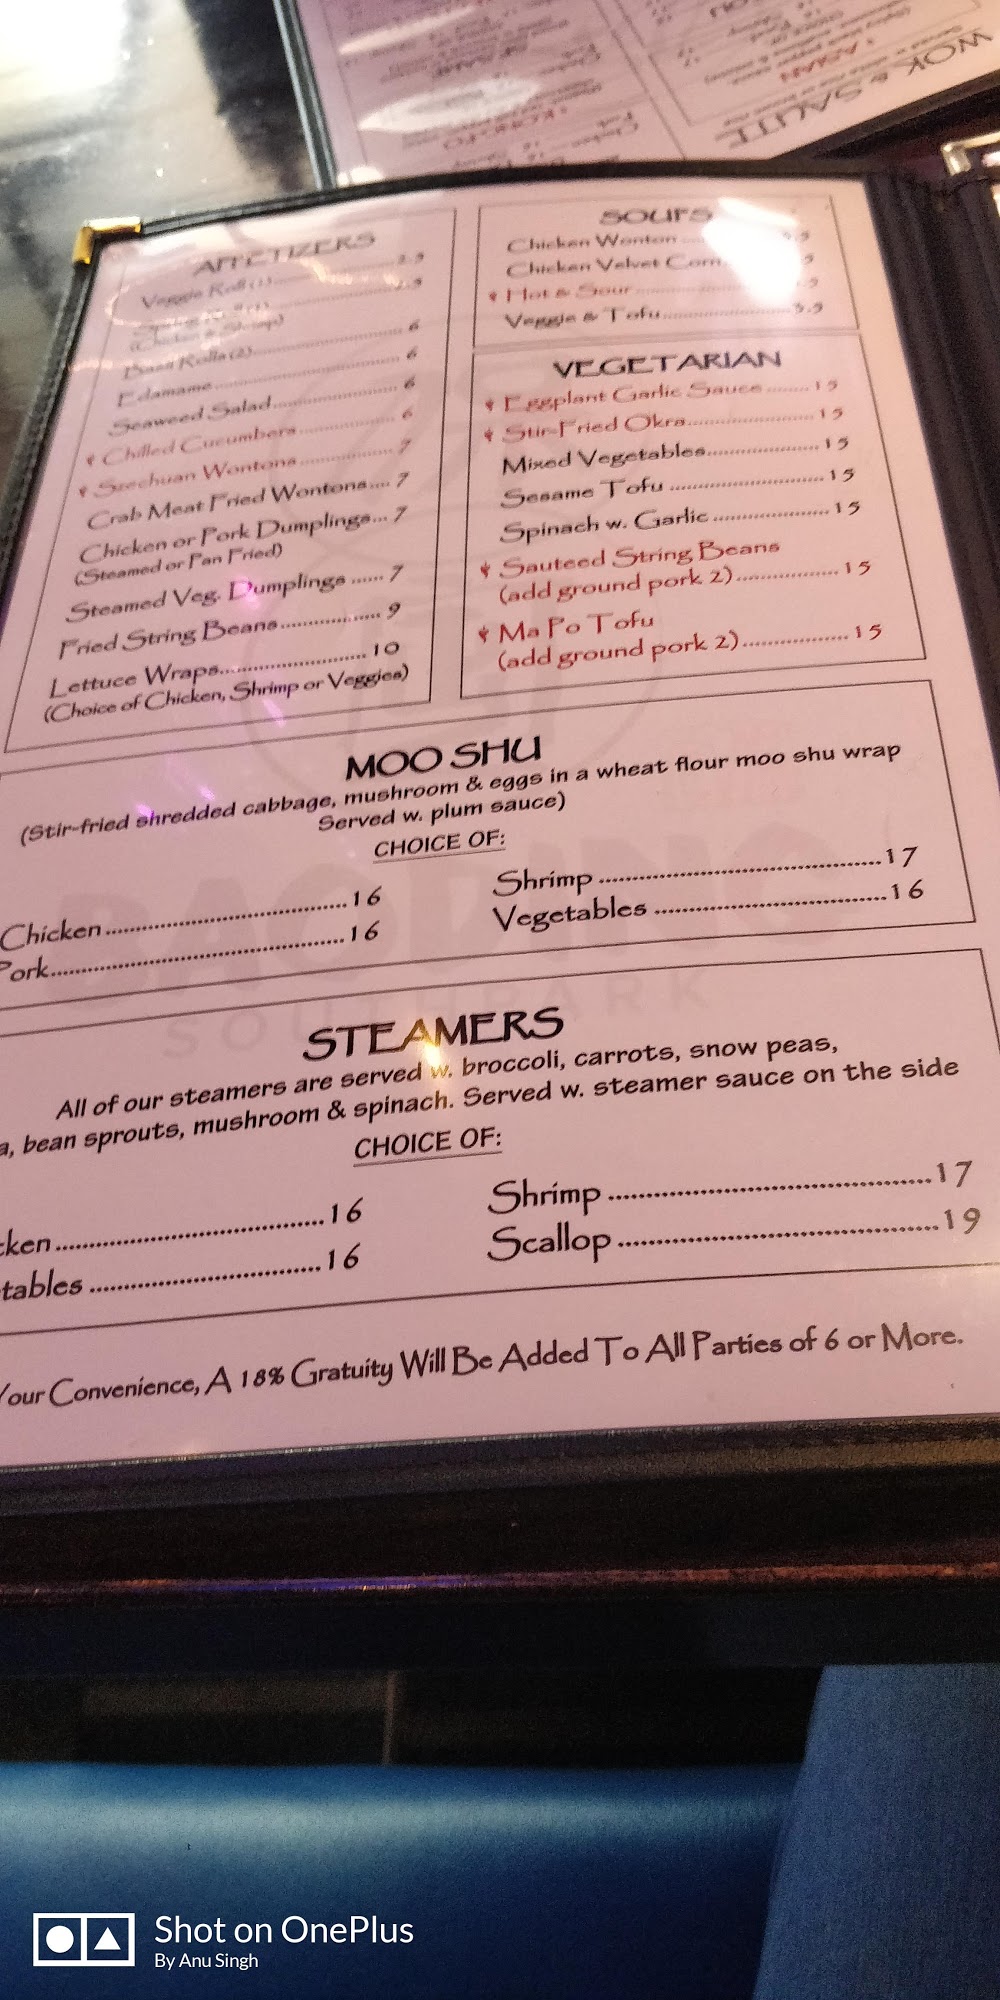 WOK & SAUTE
ASIAN
APPETIZERS
Veggie Roll (1)
(Chicken & Shrimp)
Rolls (2) 6
Edamame 6
Seaweed Salad 6
Chilled Cucumbers 6
Szechuan Wontons 7
Crab Meat Fried Wontons.... 7
Chicken or Pork Dumplings... 7
(Steamed or Pan Fried)
Steamed Veg. Dumplings ...... 7
Fried String Beans.................. 9
Lettuce Wraps..........................10
(Choice of Chicken, Shrimp or Veggies)
SOUPS
Chicken Wonton
Chicken Velvet Corn
Hot & Sour
Veggie & Tofu
VEGETARIAN
Eggplant Garlic Sauce ........15
Stir-Fried Okra........................15
Mixed Vegetables.....................15
Sesame Tofu .............................15
Spinach w. Garlic .....................15
Sauteed String Beans
(add ground pork 2)..................15
Ma Po Tofu
(add ground pork 2)..................15
MOO SHU
(Stir-fried shredded cabbage, mushroom & eggs in a wheat flour moo shu wrap
Served w. plum sauce)
CHOICE OF:
Chicken ..........................................16
Pork..................................................16
Shrimp ................................................17
Vegetables .......................................16
SOUTHPARK
STEAMERS
All of our steamers are served w. broccoli, carrots, snow peas,
a, bean sprouts, mushroom & spinach. Served w. steamer sauce on the side
CHOICE OF:
cken ..............................................16
tables ........................................16
Shrimp ......................................................17
Scallop .....................................................19
Your Convenience, A 18% Gratuity Will Be Added To All Parties of 6 or More.
Shot on OnePlus
By Anu Singh